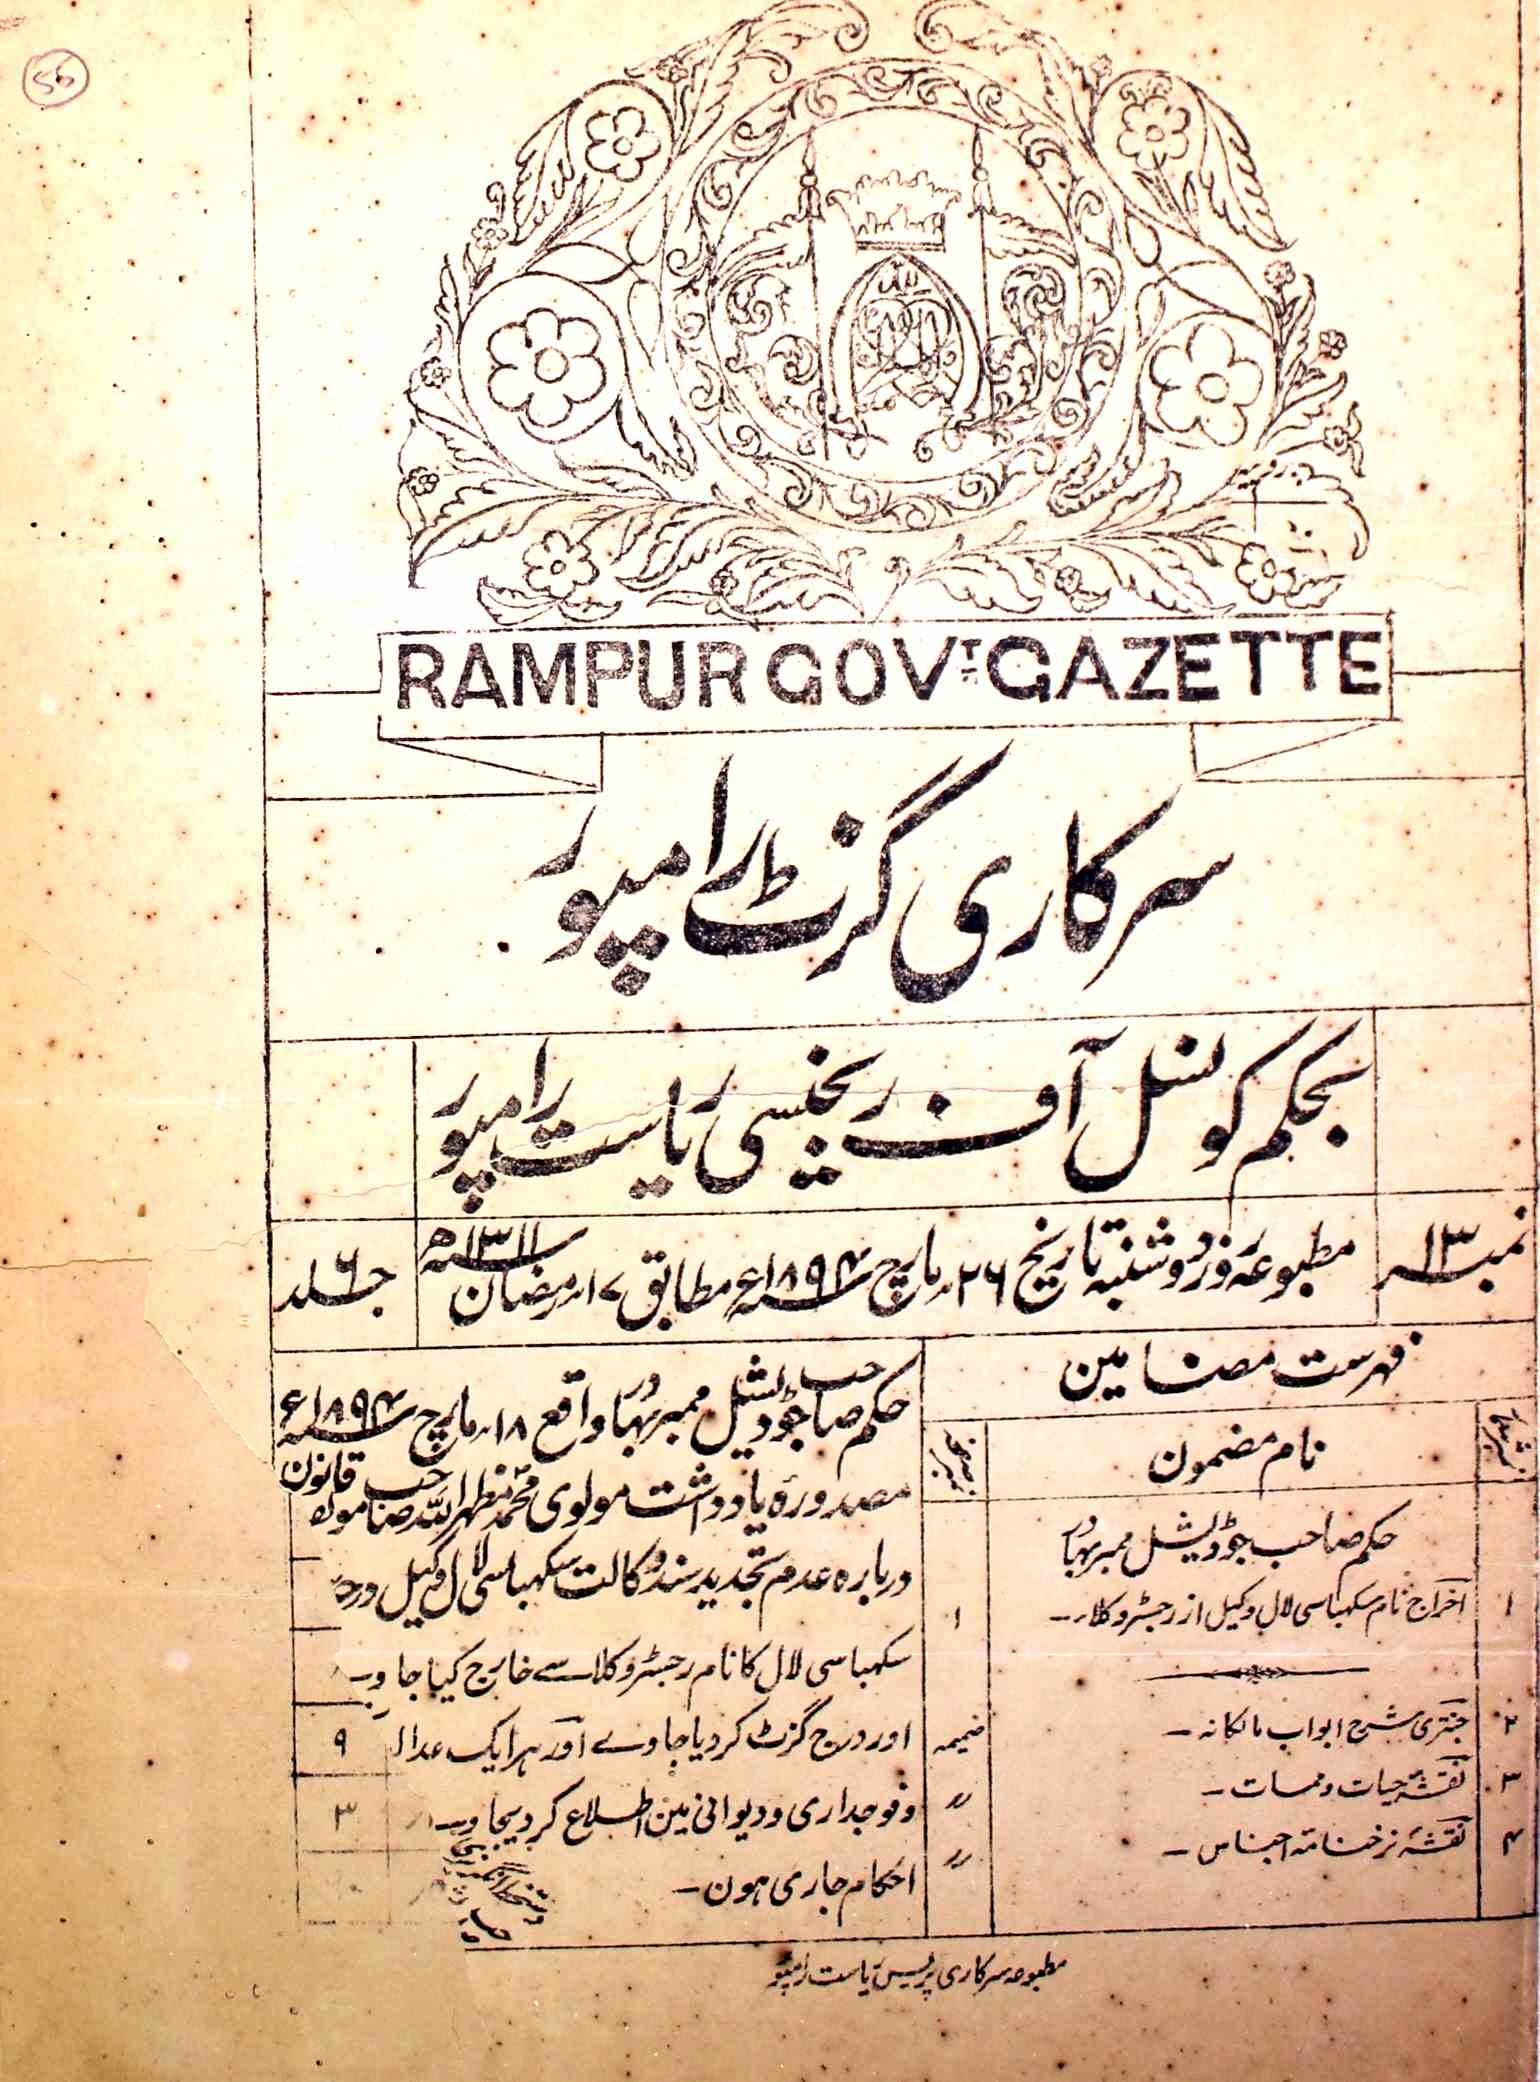 56
RAMPUR GOVT. GAZETTE
سرکاری گزٹ رامپور
بحکم کونسل آف ریجنسی ریاست رامپور
نمبر ۱۳
مطبوعہ روز دوشنبہ تاریخ ۲۶ مارچ سنہ ۱۸۹۴ء مطابق ۱۷ رمضان سنہ ۱۳۱۱ھ
جلد ۶
فہرست مضامین
نام مضمون
حکم صاحب جوڈیشل ممبر بہادر
۱ اخراج نام سکہباسی لال وکیل از رجسٹر وکلاء۔ ۱
۲ جنتری شرح ابواب مالکانہ۔ ضمیمہ
۳ نقشہ حیات و ممات۔ ״
۴ نقشہ نرخنامہ اجناس۔ ״
حکم صاحب جوڈیشل ممبر بہادر واقع ۱۸ مارچ سنہ ۱۸۹۴ء
مصدورہ یادداشت مولوی محمد مظہر اللہ صاحب قانون
درباره عدم تجدید سند وکالت سکہباسی لال وکیل
سکہباسی لال کا نام رجسٹر وکلا سے خارج کیا جاوے
اور درج گزٹ کر دیا جاوے اور ہر ایک ۹
و فوجداری و دیوانی مین اطلاع کر دیجاوے ۳
احکام جاری ہون۔
مطبوعہ سرکاری پریس ریاست رامپور